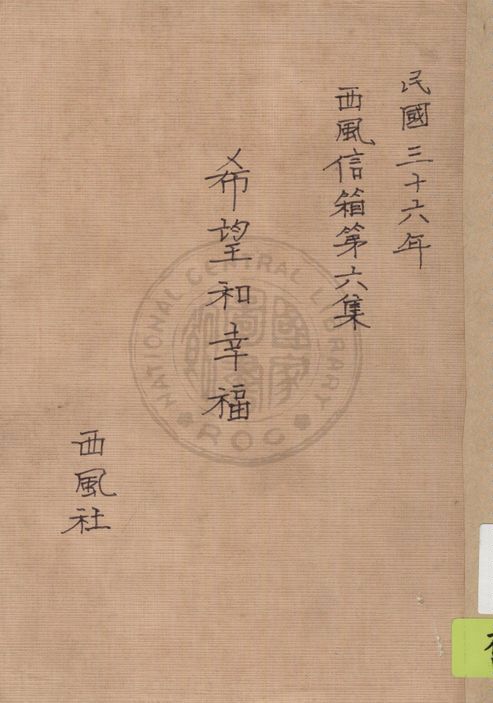 民國三十六年
西風信箱第六集
希望和幸福
西風社
NATIONAL CENTRAL LIBRARY
ROC
國家圖書館